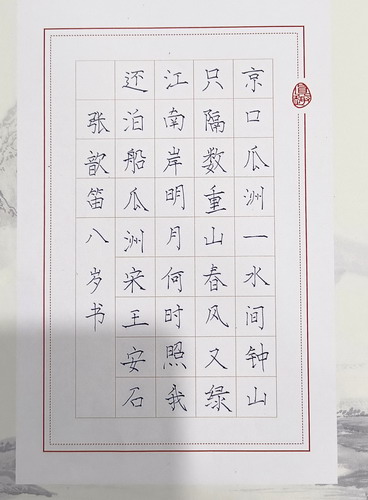 京口瓜洲一水间钟山
只隔数重山春风又绿
江南岸明月何时照我
还泊船瓜洲宋王安石
张歆笛八岁书